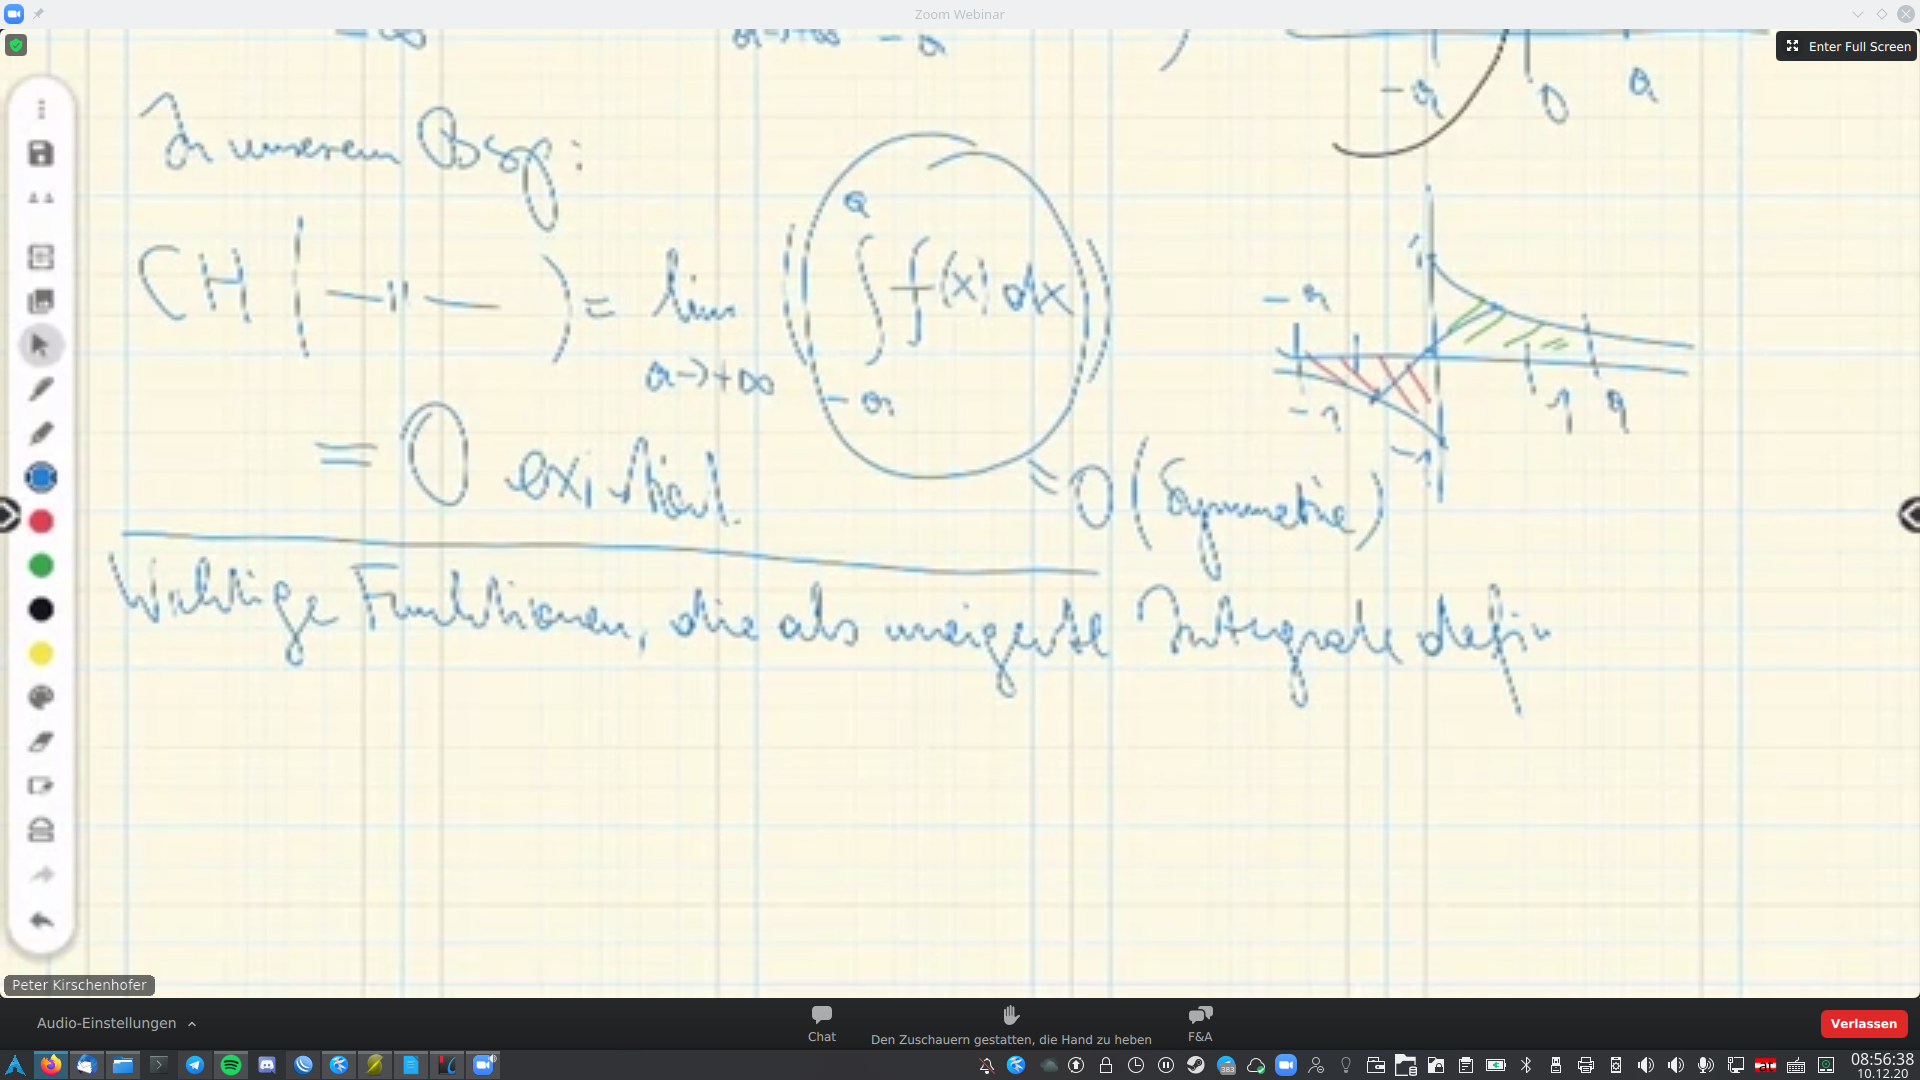 Zoom Webinar
Enter Full Screen
-∞ a→+∞ -a )
-a 0 a
In unserem Bsp:
CH ( —"— ) = lim a→+∞ ∫ -a a f(x) dx
= 0 existiert.
= 0 (Symmetrie)
1
-a
-1 1 a
-1
Wichtige Funktionen, die als uneigentl Integrale defin
Peter Kirschenhofer
Audio-Einstellungen
Chat
Den Zuschauern gestatten, die Hand zu heben
F&A
Verlassen
383
08:56:38
10.12.20